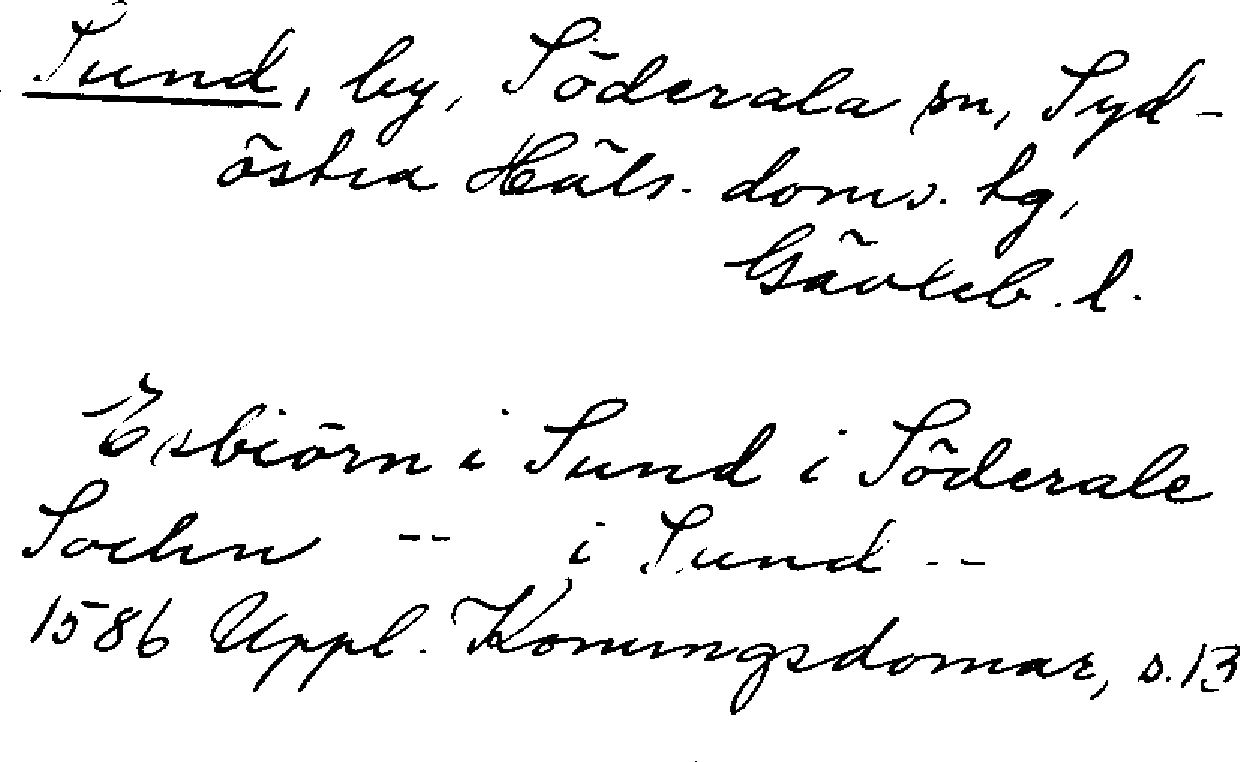 Sund, by, Söderala sn, Syd-
östra Häls. doms. hg,
Gävleb. l.
Esbiörn i Sund i Söderale
Sochn -- i Sund --
1586 Uppl. Konungsdomar, s. 13